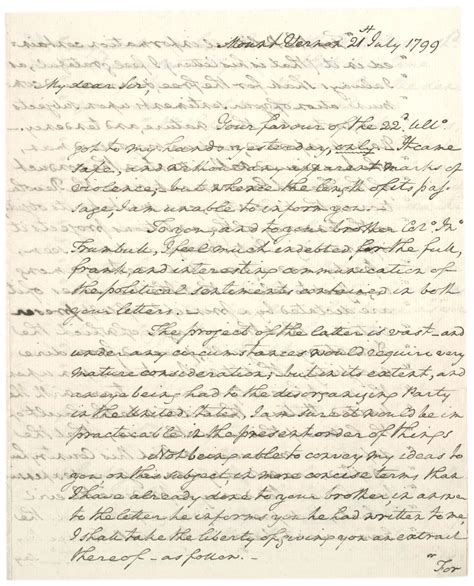 Mount Vernon 21st July 1799
My dear Sir,
Your favour of the 22d Ulto
got to my hands yesterday, only. It came
safe, and without any apparent marks of
violence; but whence the length of its pas
sage, I am unable to inform you.
To you, and to your brother Colo. Jno
Trumbull, I feel much indebted for the full,
frank, and interesting communication of
the political sentiments contained in both
your letters.
The project of the latter is vast, and
under any circumstances would require very
mature consideration; but in its extent, and
an eye being had to the disorganizing Party
in the United States, I am sure it would be im
practicable in the present order of things
Not being able to convey my ideas to
you, on this subject in more concise terms than
I have already done to your brother, in answer
to the letter he informs you he had written to me,
I shall take the liberty of giving you an extract
thereof—as follow.—
"For